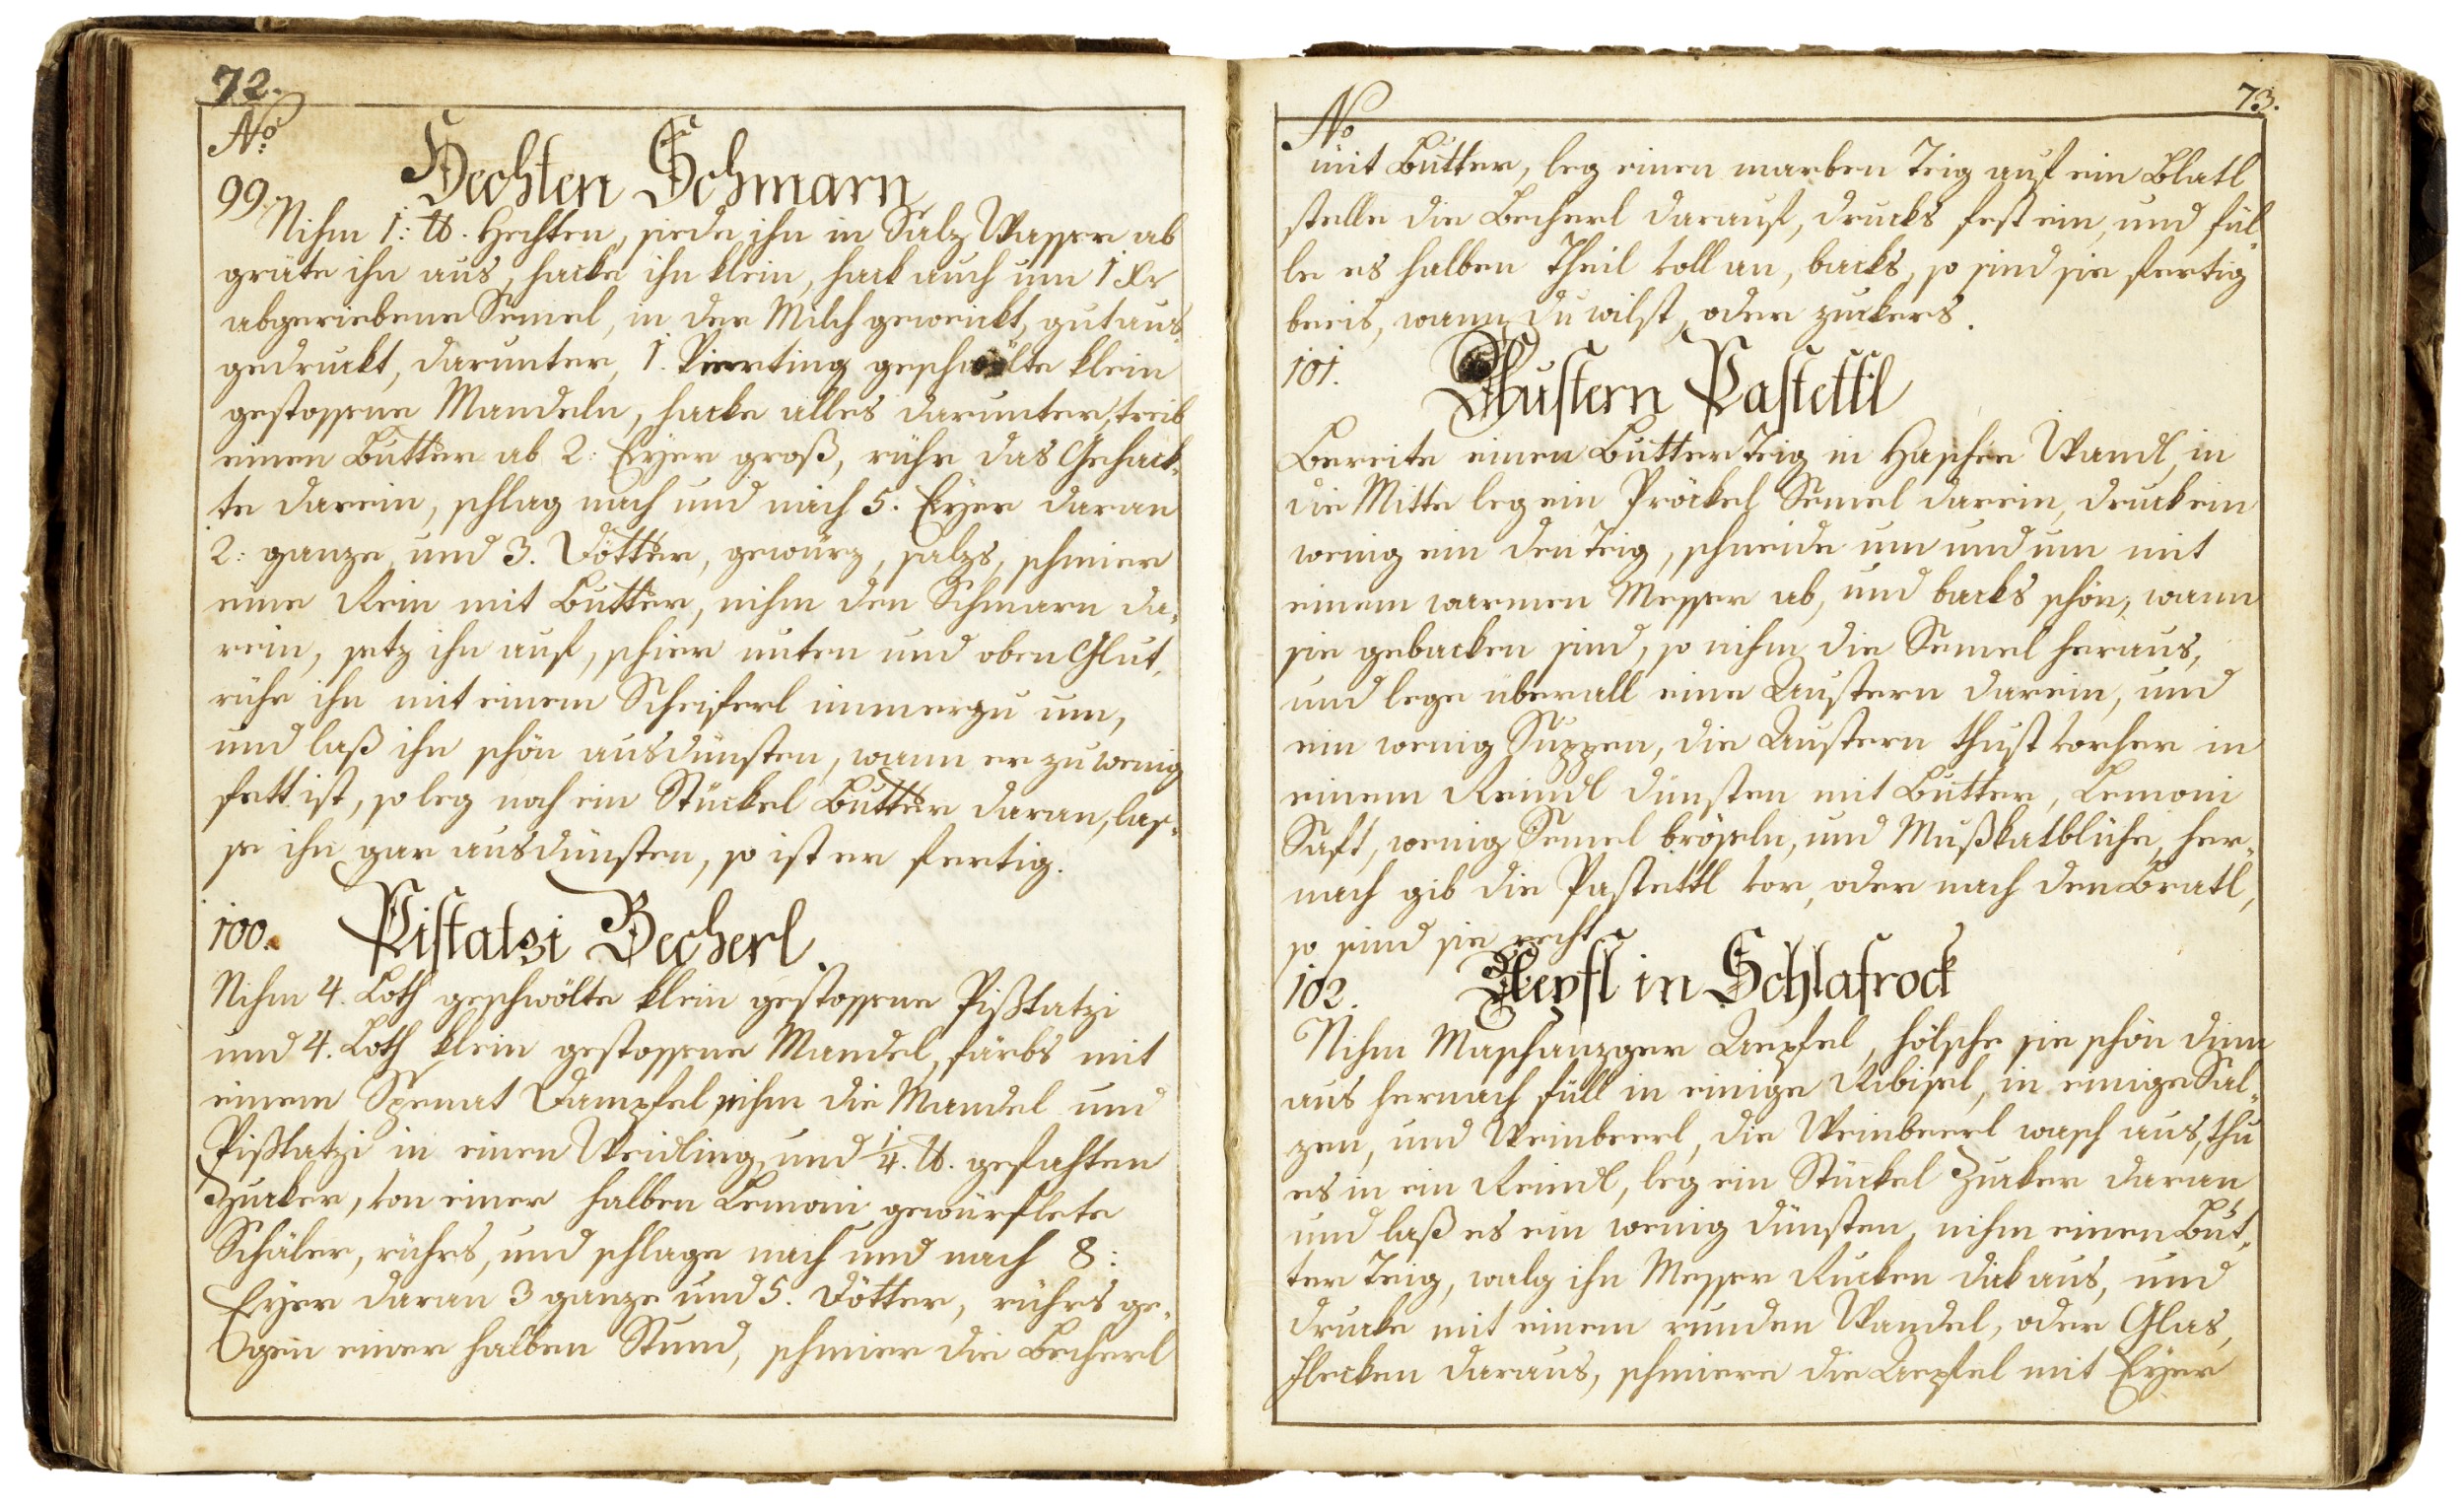 72.
No:
99. Hechten Schmarn
Nihm 1: ℔. Hechten, siede ihn in Salz Wasser ab
gräte ihn aus, hacke ihn klein, hack auch um 1 Xr
abgeriebene Semel, in der Milch geweickt, gut aus¬
gedruckt, darunter, 1. Vierting geschwölte klein
gestossene Mandeln, hacke alles darunter, treib
einen Butter ab 2: Eyer groß, rühr das Gehack¬
te darein, schlag nach und nach 5. Eyer daran
2: ganze und 3. Dötter, gewürz, salzs, schmier
eine Rein mit Butter, nihm den Schmarn da¬
rein, setz ihn auf, schier unten und oben Glut,
rühr ihn mit einem Scheiferl immerzu um,
und laß ihn schön ausdünsten, wann er zu wenig
fett ist, so leg noch ein Stückel Butter daran, las¬
se ihn gar ausdünsten, so ist er fertig.
100. Pistatzi Becherl.
Nihm 4. Loth geschwölte klein gestossene Pißtatzi
und 4. Loth klein gestossene Mandel, färbs mit
einem Spenat Dampfel nihm die Mandel und
Pißtatzi in einen Weidling, und 1/4. ℔. gefahten
Zucker, von einer halben Lemoni gewürflete
Schäler, rührs, und schlage nach und nach 8:
Eyer daran 3 ganze und 5. Dötter, rührs ge¬
gen einer halben Stund, schmier die Becherl
No
73.
mit Butter, leg einen marben Teig auf ein Blatl
stelle die Becherl darauf, drucks fest ein, und fül¬
le es halben Theil voll an, backs, so sind sie fertig
beeis, wann du wilst, oder zuckers.
101. Austern Pastettl
Bereite einen Butter Teig in Haschee Wandl, in
die Mitte leg ein Pröckel Semel darein, druck ein
wenig ein den Teig, schneide um und um mit
einem warmen Messer ab, und backs schön, wann
sie gebacken sind, so nihm die Semel heraus,
und lege überall eine Austern darein, und
ein wenig Suppen, die Austern thust vorher in
einem Reindl dünsten mit Butter, Lemoni
Saft, wenig Semel bröseln, und Mußkatblühe, her¬
nach gib die Pastettl vor, oder nach den Bratl,
so sind sie recht
102. Aepfl in Schlafrock
Nihm Maschanzger Aepfel, hölsche sie schön dinn
aus hernach füll in einige Ribisel, in einige Sal¬
zen, und Weinbeerl, die Weinbeerl wasch aus, thu
es in ein Reindl, leg ein Stückel Zucker daran
und laß es ein wenig dünsten, nihm einen But¬
ter Teig, walg ihn Messer Rucken dick aus, und
drucke mit einem runden Wandel, oder Glas,
Flecken daraus, schmiere die Aepfel mit Eyer